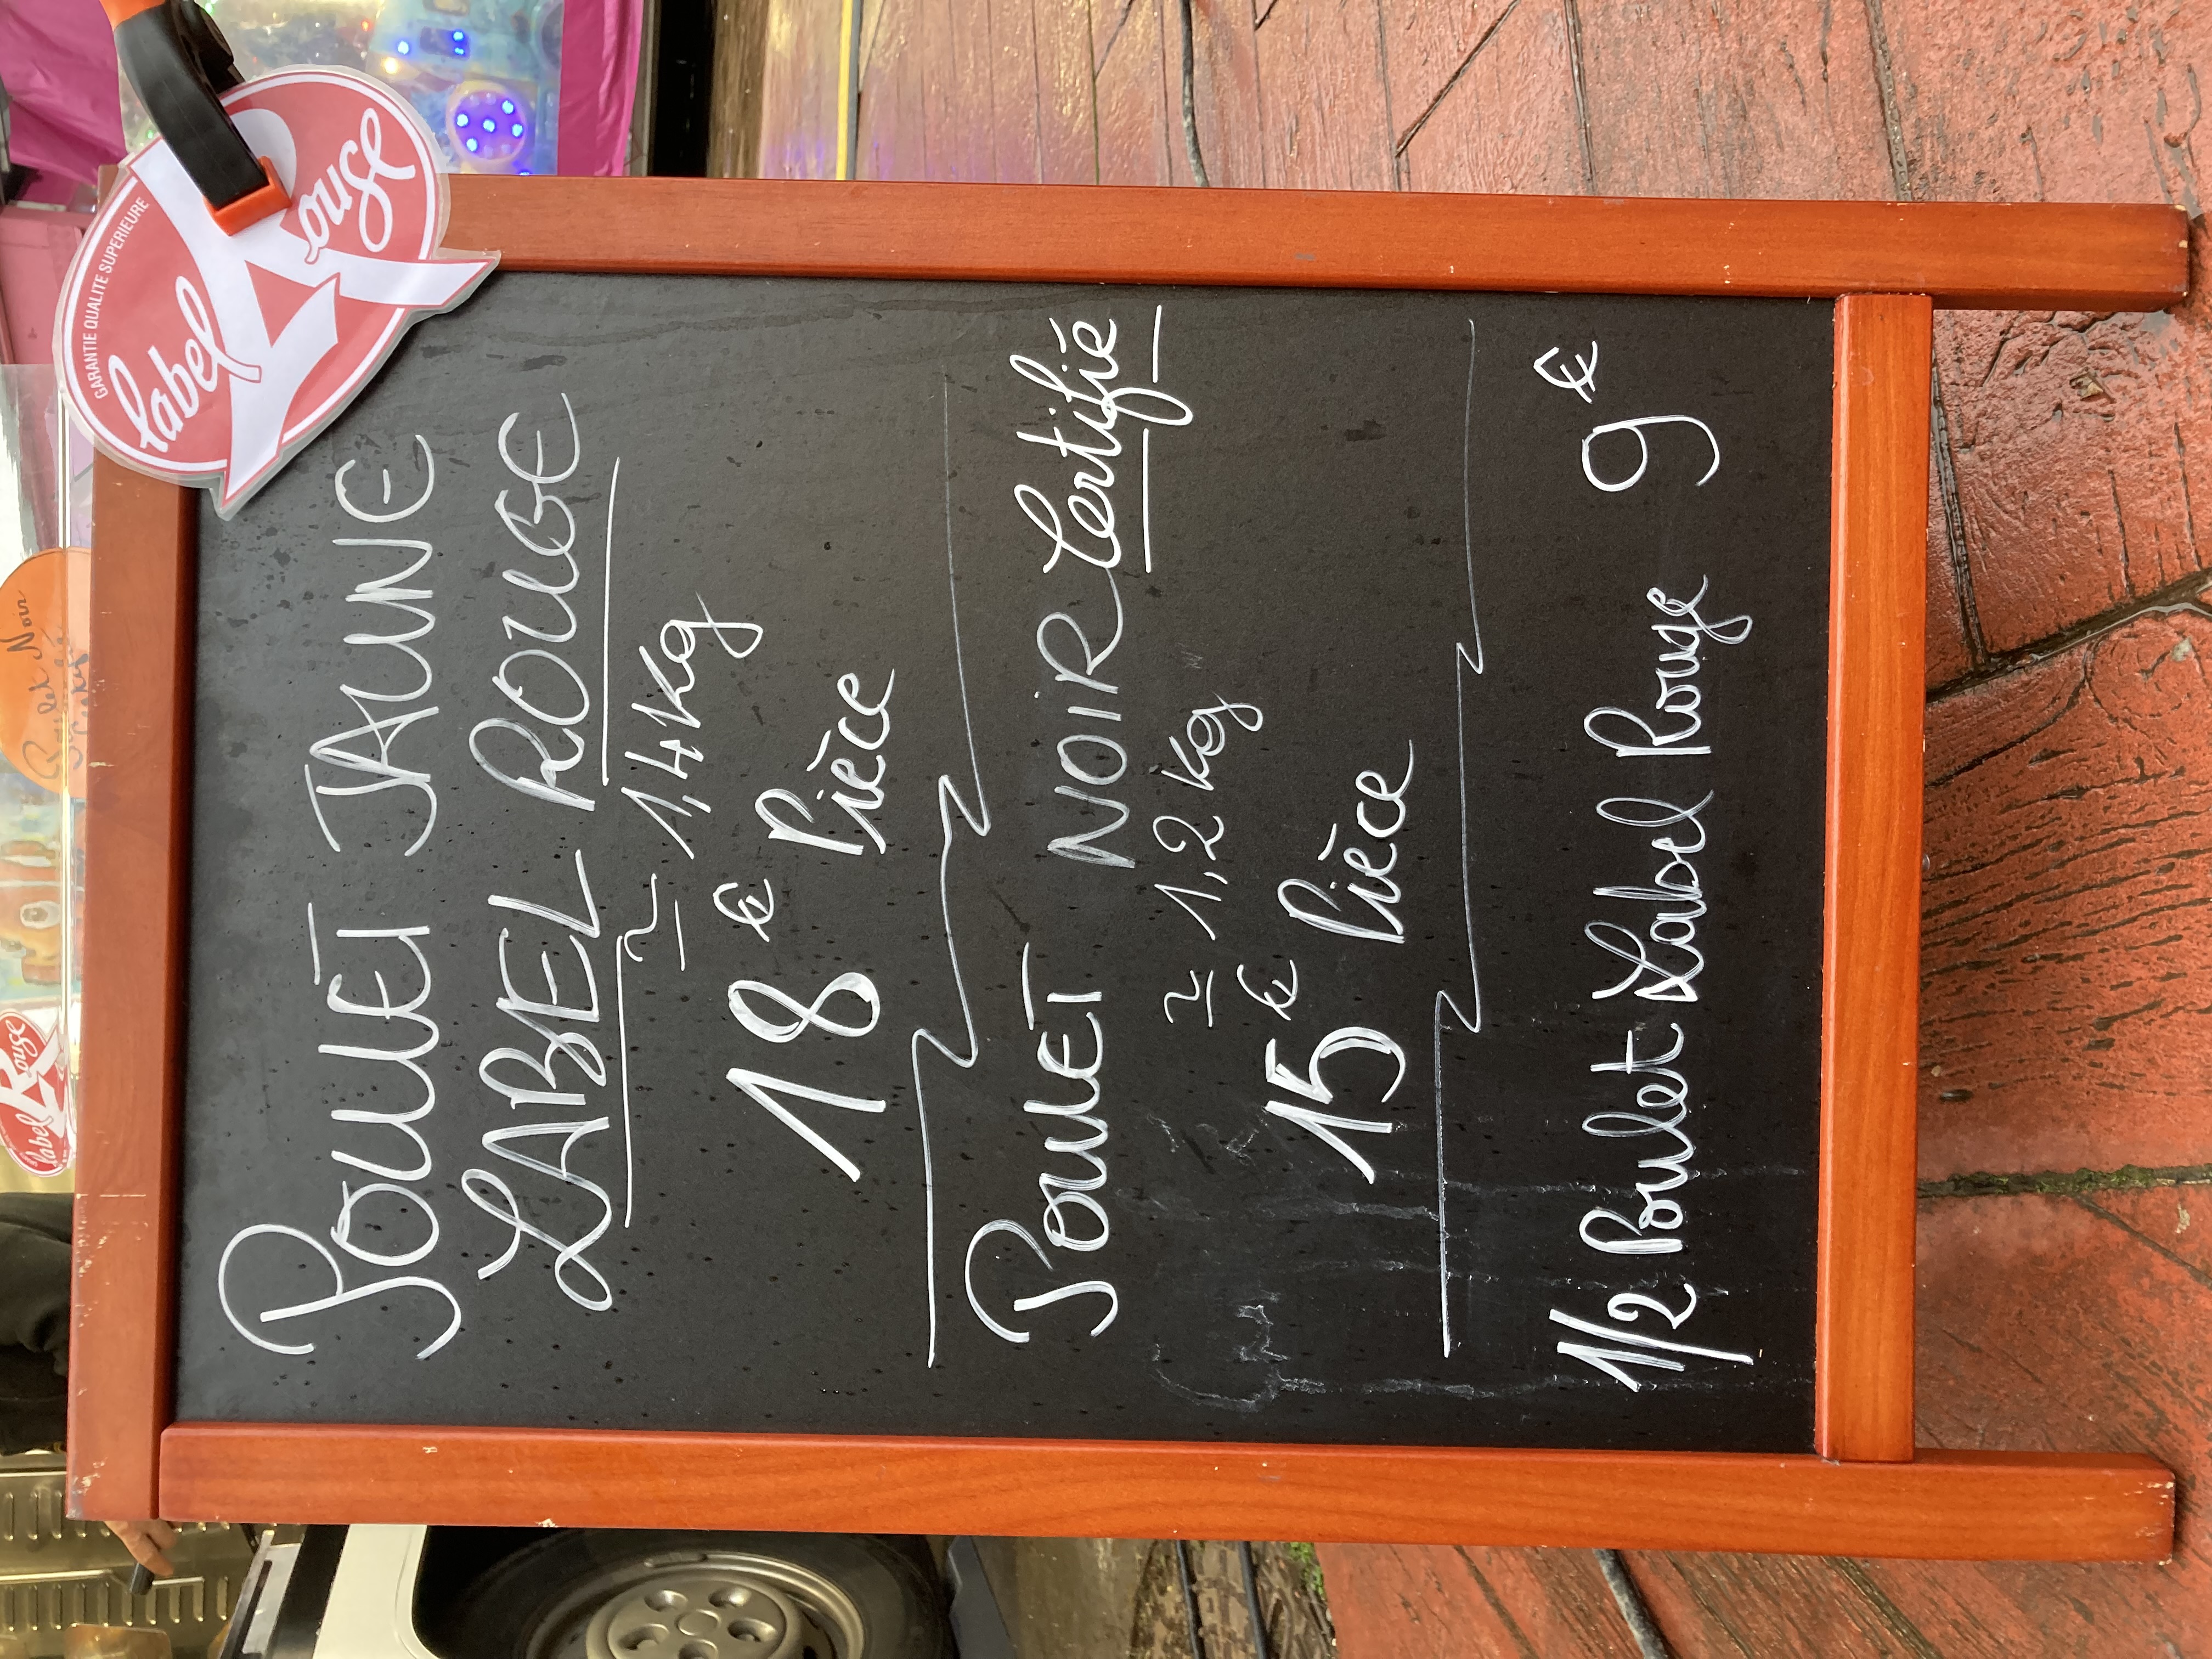 GARANTIE QUALITE SUPERIEURE
label Rouge
POULET JAUNE
LABEL ROUGE
≃ 1,4 kg
18 € Pièce
POULET NOIR Certifié
≃ 1,2 kg
15 € Pièce
1/2 Poulet Label Rouge 9 €
label Rouge
Poulet Noir